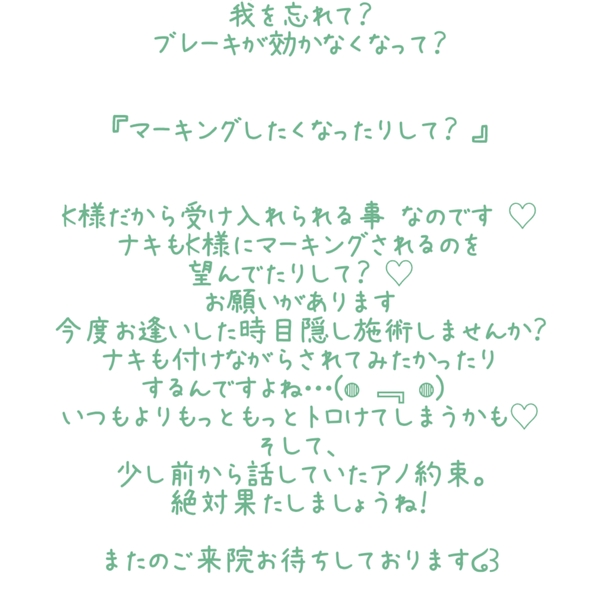 我を忘れて?
ブレーキが効かなくなって?
『マーキングしたくなったりして? 』
K様だから受け入れられる事 なのです ♡
ナキもK様にマーキングされるのを
望んでたりして? ♡
お願いがあります
今度お逢いした時目隠し施術しませんか?
ナキも付けながらされてみたかったり
するんですよね…(◍ ﹃ ◍)
いつもよりもっともっとトロけてしまうかも♡
そして、
少し前から話していたアノ約束。
絶対果たしましょうね!
またのご来院お待ちしております໒꒱